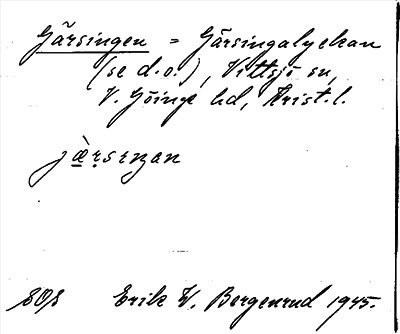 Gärsingen = Gärsingalyckan
(se d.o.), Vittsjö sn,
V. Göinge hd, Krist. l.
Erik W. Bergenrud 1945.